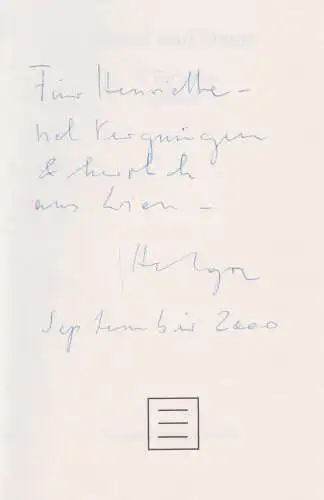 Für Henriette –
viel Vergnügen
& herzlich
aus Wien –
Holger
September 2000